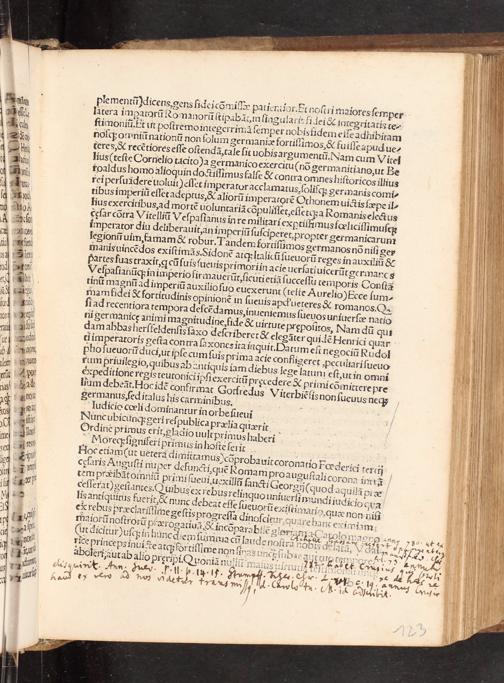 plementū)dicens, gens fidei cōmissæ patientior. Et nostri maiores semper
latera impatorū Romanorū stipabāt, in singularis fidei & integritatis te-
stimoniū. Et ut postremo integerrimā semper nobis fidem esse adhibitam
nosce omniū nationū non solum germaniæ fortissimos, & fuisse apud ue-
teres, & recētiores esse ostendā, tale sit uobis argumentū. Nam cum Vitel
lius (teste Cornelio tacito) a germanico exercitu (nō germanitiano, ut Be
roaldus homo alioquin doctissimus false & contra omnes historicos illius
rei persuadere uoluit) esset imperator acclamatus, solisq; germanis comi-
tibus imperiū esset adeptus, & aliorū imperatorē Othonem uictis sæpe il-
lius exercitibus, ad mortē uoluntariā cōpulisset, essetq; a Romanis electus
cęsar cōtra Vitelliū Vespasianus in re militari exptissimus fœlicissimusq;
imperator diu deliberauit, an imperiū susciperet, propter germanicarum
legionū uim, famam & robur. Tandem fortissimos germanos nō nisi ger
manis uincēdos existimās, Sidonē atq; Italicū sueuorū reges in auxiliū &
partes suas traxit, q cū suis sueuis primori in acie uersati uicerūt germanos
Vespasianūq; in imperio firmauerūt, sicuti etiā successu temporis Constā
tinū magnū ad imperiū auxilio suo euexerunt (teste Aurelio) Ecce sum-
mam fidei & fortitudinis opinionē in sueuis apd' ueteres & romanos. Q
si ad recentiora tempora descēdamus, inueniemus sueuos uniuersæ natio
ni germanicę animi magnitudine, fide & uirtute prępositos. Nam dū qui
dam abbas hersfeldensis saxo describeret & elegāter qui dē Henrici quar
ti imperatoris gesta contra saxones ita inquit. Datum est negociū Rudol
pho sueuorū duci, ut ipse cum suis prima acie confligeret, peculiari sueuo
rum priuilegio, quibus ab antiquis iam diebus lege latum est, ut in omni
expeditione regis teutonici ipsi exercitū pręcedere & primi cōmittere pre
lium debeāt. Hoc idē confirmat Gotfredus Viterbiēsis non sueuus neq;
germanus, sed italus his carminibus.
Iudicio cœli dominantur in orbe sueui
Nunc ubicunq; geri respublica prælia quærit
Ordine primus erit, gladio uult primus haberi
Moreq; signiferi primus in hoste ferit
Hoc etiam (ut uetera dimittamus) cōprobauit coronatio Fœderici tertij
cęsaris Augusti nuper defuncti, quē Romam pro augustali corona
tem præibāt omniū primi sueui, uexillū sancti Georgij (quod aquilā præ
cesserat) gestantes. Quibus ex rebus relinquo uniuersi mundi iudicio qua
lis antiquitus fuerit, & nunc debeat esse sueuorū existimatio, quæ non nisi
ex rebus præclarissime gestis progressa dinoscitur, quare hanc eximiam
maiorū nostrorū prærogatiuā, & incōparabilē gloriā a Carolo magno
(ut dicitur) usq; in hunc diem summa cū laude nostra nobis delatā,
rice princeps inuicte atq; fortissime non sinas
aboleri, aut ab alio præripi. Quoniā
disquirit. Ann. Suev. p. II. p. 14. 15. Stumpf.
haud ex vero ad nos videtur transmissi, id Carolo
123